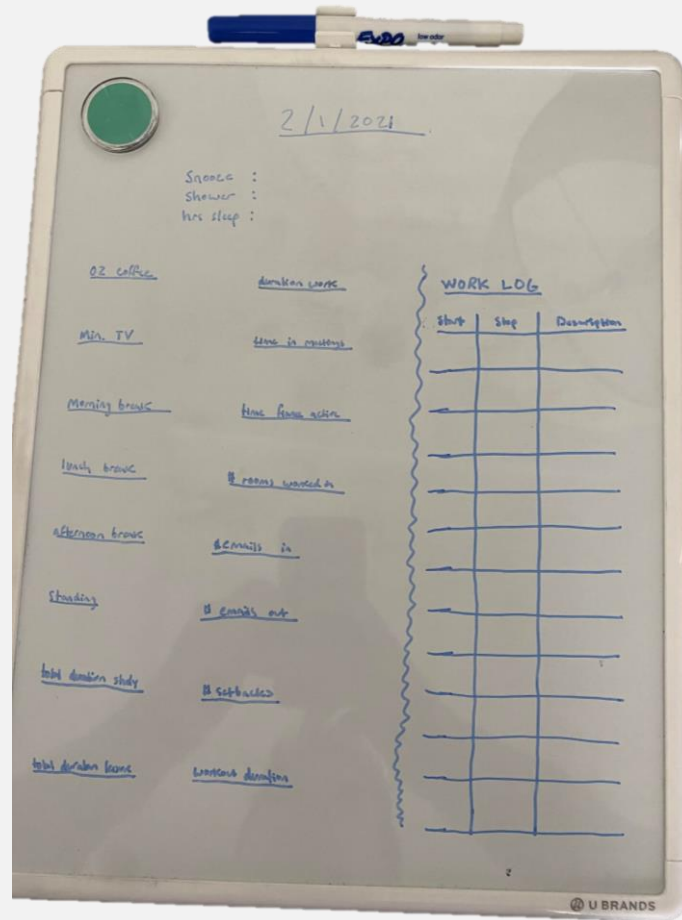 EXPO low odor
2/1/2021
Snooze :
Shower :
hrs sleep :
OZ coffee
Min. TV
Morning break
lunch break
afternoon break
Standing
total duration study
total duration
duration work
time in meetings
time
# rooms worked in
# emails in
# emails out
# setbacks
workout duration
WORK LOG
Start Stop Description
U BRANDS